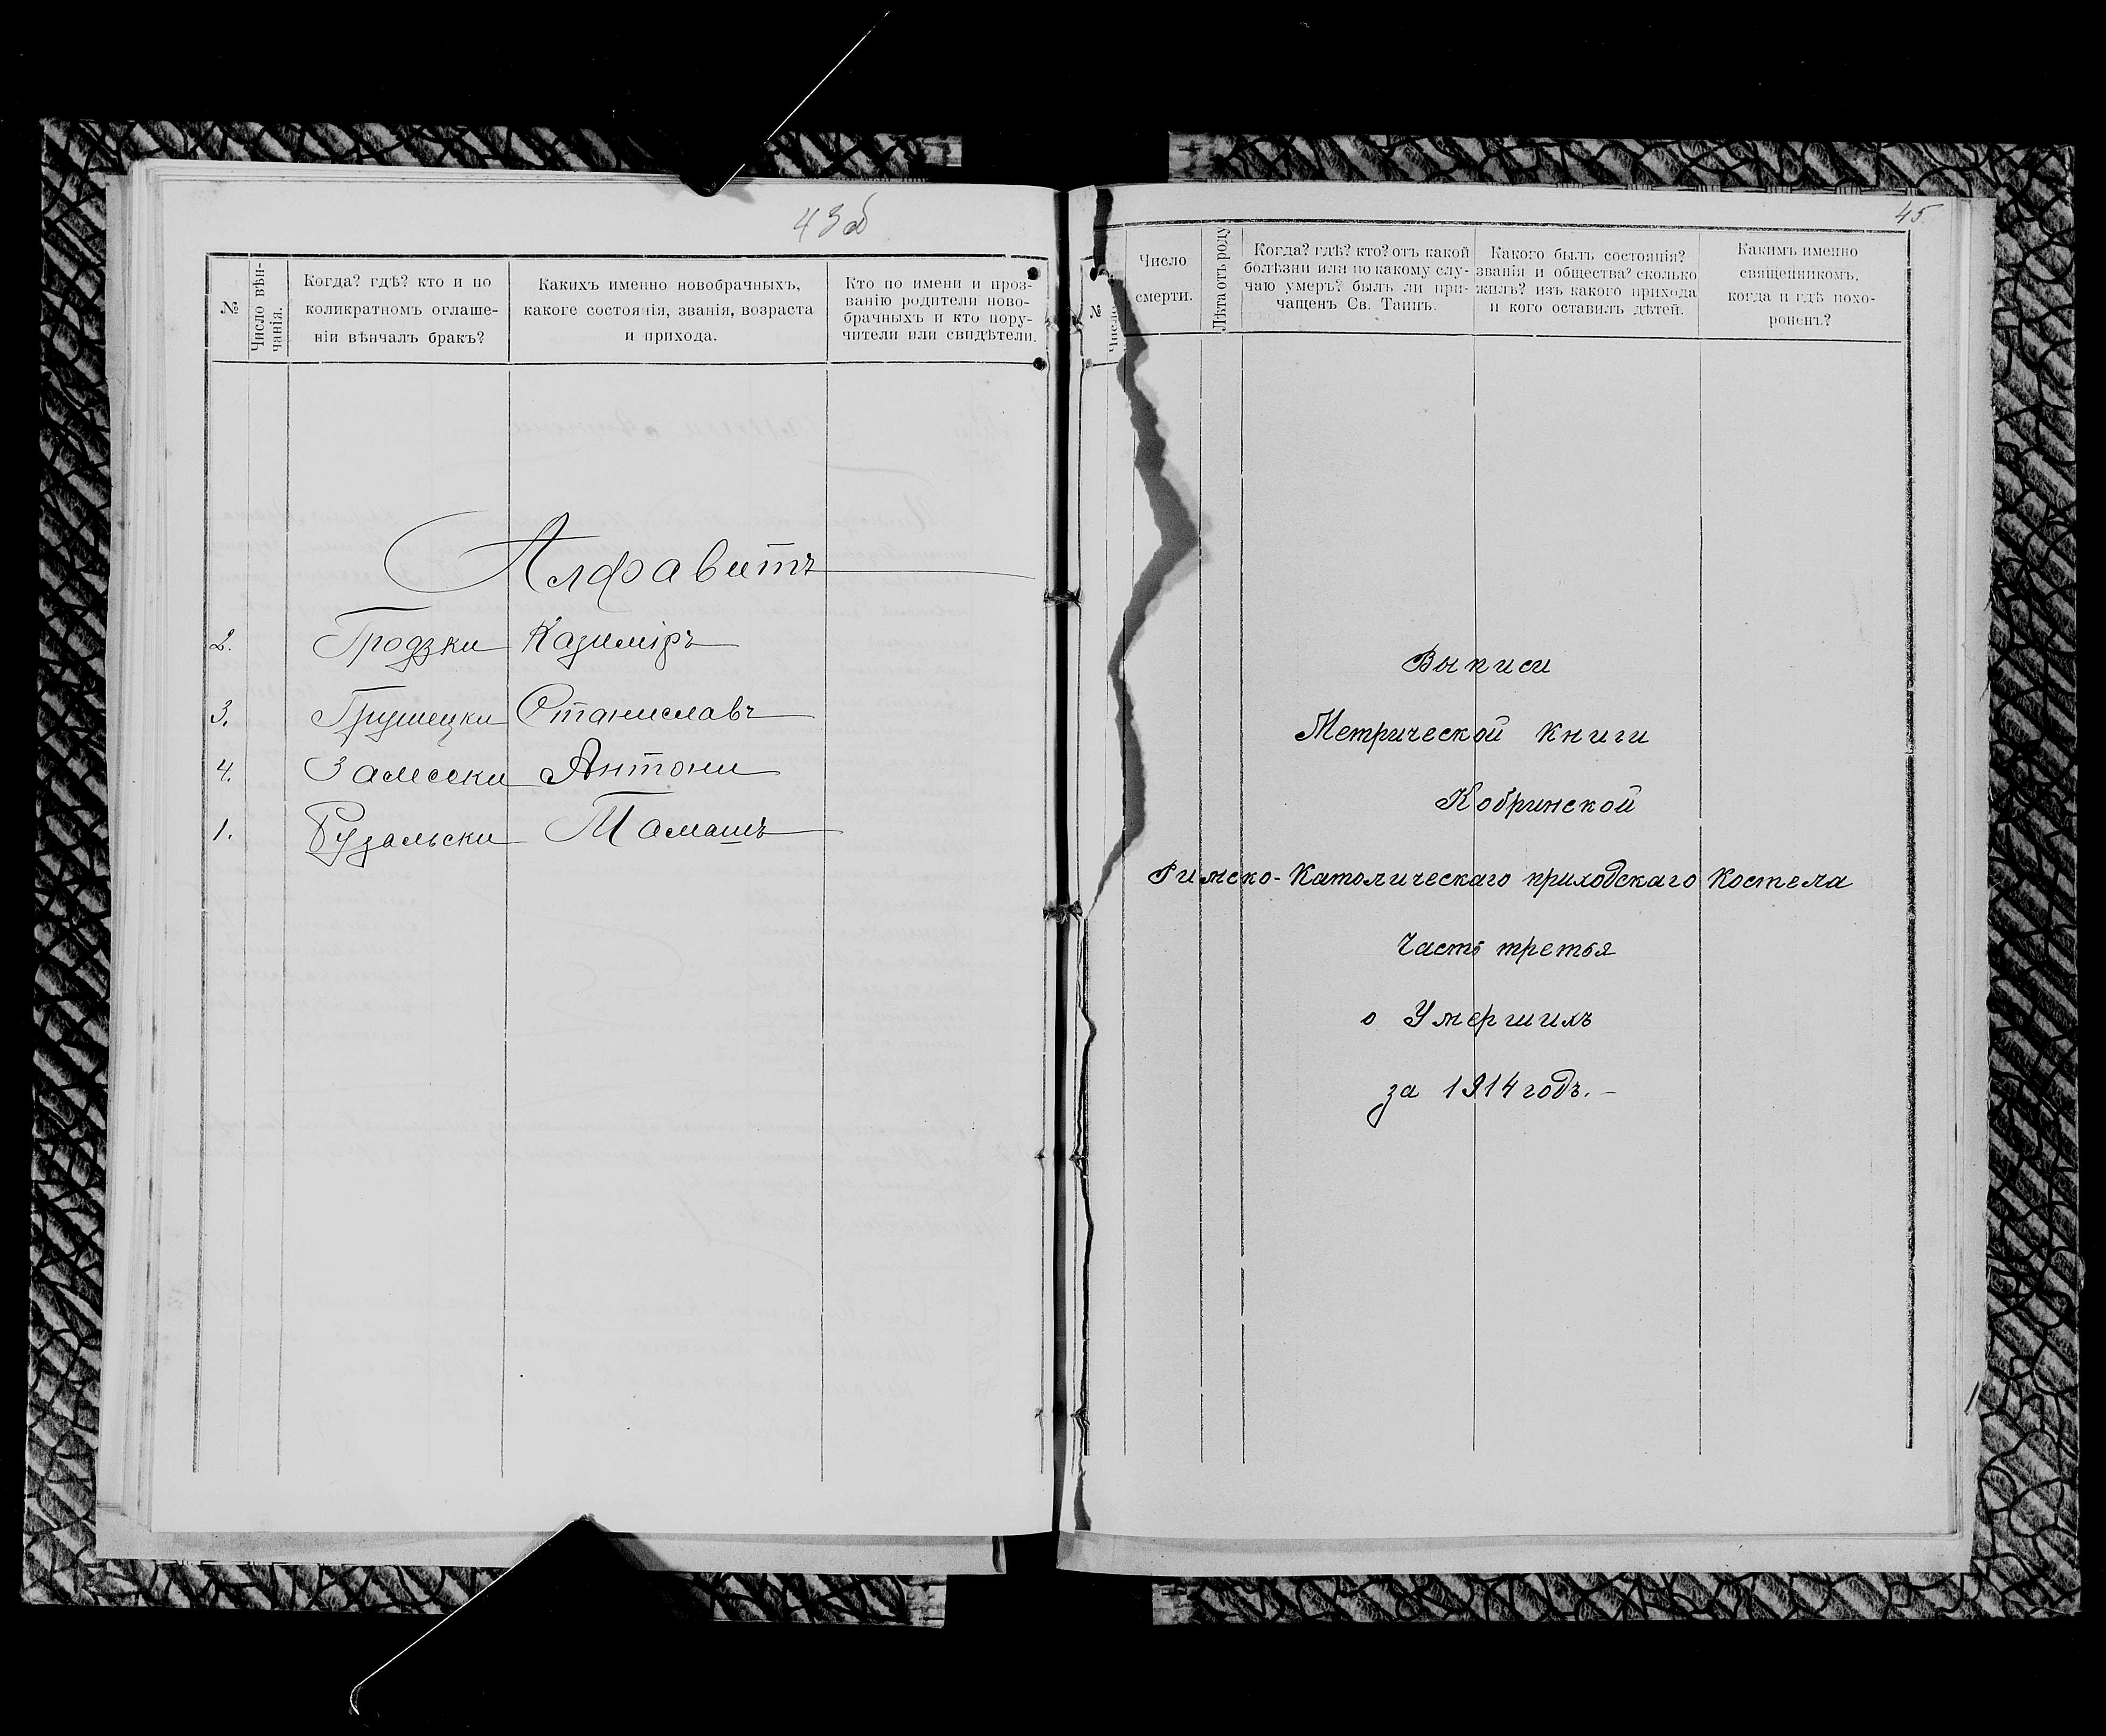 43об
№
Число вѣн-
чанія.
Когда? гдѣ? кто и по
коликратномъ оглаше-
ніи вѣнчалъ бракъ?
Какихъ именно новобрачныхъ,
какого состоянія, званія, возраста
и прихода.
Кто по имени и проз-
ванію родители ново-
брачныхъ и кто пору-
чители или свидѣтели.
Алфавитъ
2. Гродзки Казиміръ
3. Грушецки Станиславъ
4. Залесски Антони
1. Рузальски Тамашъ
45
№
Число
Число
смерти.
Лѣта отъ роду
Когда? гдѣ? кто? отъ какой
болѣзни или по какому слу-
чаю умеръ? былъ ли при-
чащенъ Св. Таинъ.
Какого былъ состоянія?
званія и общества? сколько
жилъ? изъ какого прихода
и кого оставилъ дѣтей.
Какимъ именно
священникомъ,
когда и гдѣ похо-
роненъ?
Выписи
Метрической Книги
Кобринской
Римско-Католическаго приходскаго Костела
Часть третья
о Умершихъ
за 1914 годъ.-